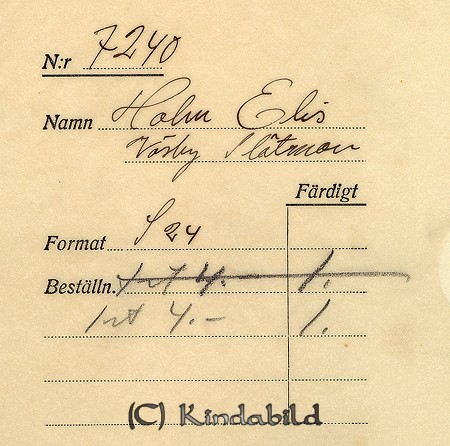 N:r 7240
Namn Holm Elis
Väsby Slätmon
Färdigt
Format S 24
Beställn. 1 st 4.- 1.
1 st 4.- 1.
(C) Kindabild